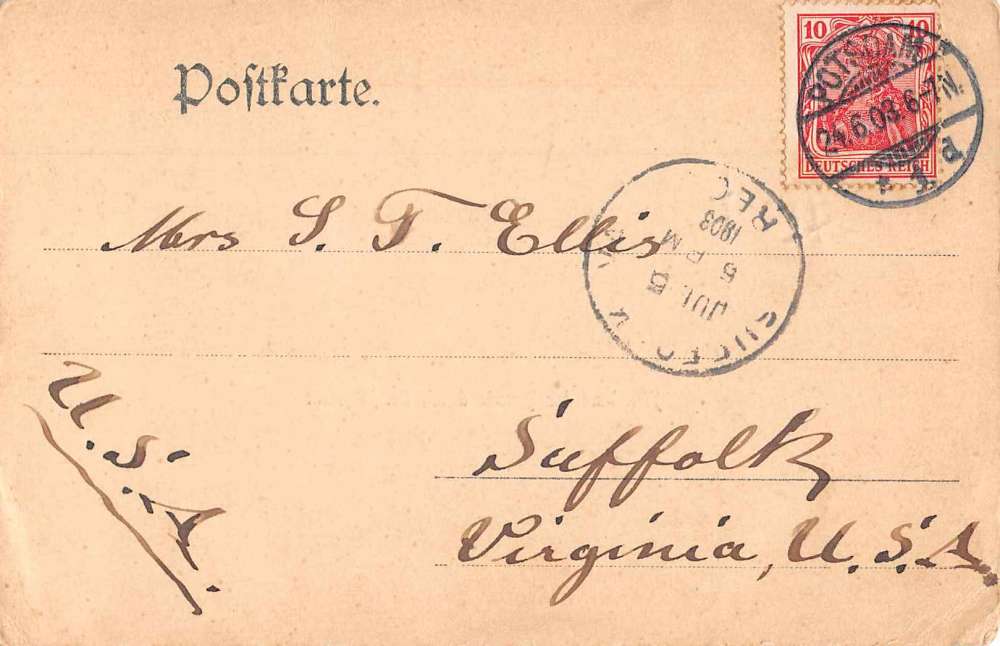 Postkarte.
10 10
DEUTSCHES REICH
POTSDAM
24.6.03. 6-7N.
* 1 d
REC'
1903
5 PM
JUL 5
SUFFOLK VA
Mrs S. T. Ellis
Suffolk
Virginia, U.S.A.
U.S.A.